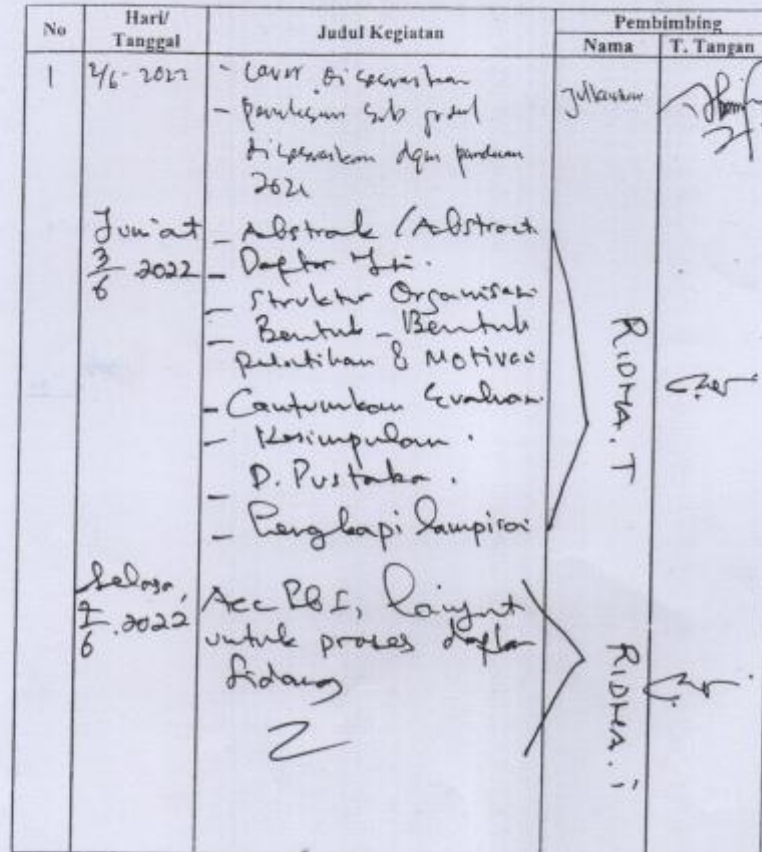 No Hari/ Tanggal Judul Kegiatan Pembimbing
Nama T. Tangan
1 2/6-2022 - Cover disesuaikan
- penulisan sub judul
disesuaikan dgn panduan
2021
Jum'at - Abstrak / Abstract
3/6 2022 - Daftar Isi.
- Struktur Organisasi
- Bentuk - Bentuk
pelatihan & Motivasi
- Cantumkan Evaluasi
- Kesimpulan.
- D. Pustaka.
- Lengkapi lampiran
RIDHA. T
Selasa,
7/6.2022 Acc PBI, lanjut
untuk proses daftar
Sidang
RIDHA.